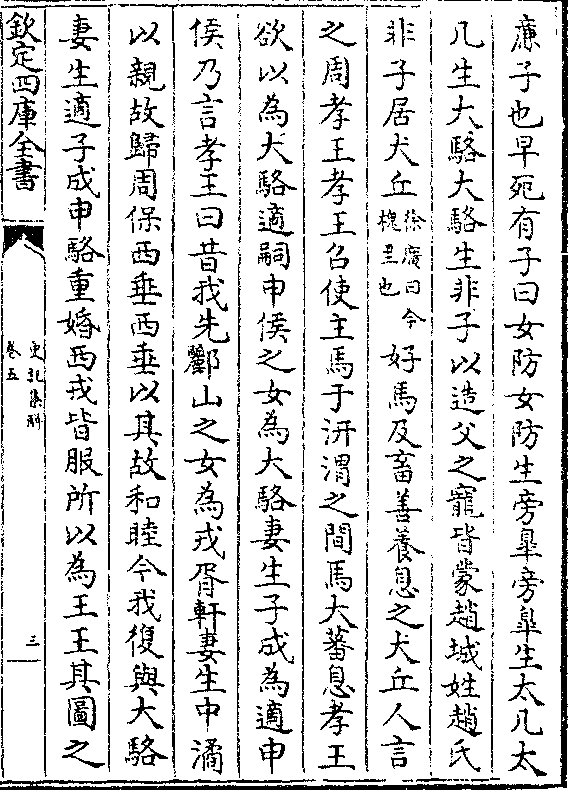 廉子也早死有子曰女防女防生旁臯旁臯生太几太
几生大駱大駱生非子以造父之寵皆蒙趙城姓趙氏
非子居犬丘徐廣曰今槐里也好馬及畜善養息之犬丘人言
之周孝王孝王召使主馬于汧渭之間馬大蕃息孝王
欲以為大駱適嗣申侯之女為大駱妻生子成為適申
侯乃言孝王曰昔我先酈山之女為戎胥軒妻生中潏
以親故歸周保西垂西垂以其故和睦今我復與大駱
妻生適子成申駱重婚西戎皆服所以為王王其圖之
欽定四庫全書
史記集解
卷五
三